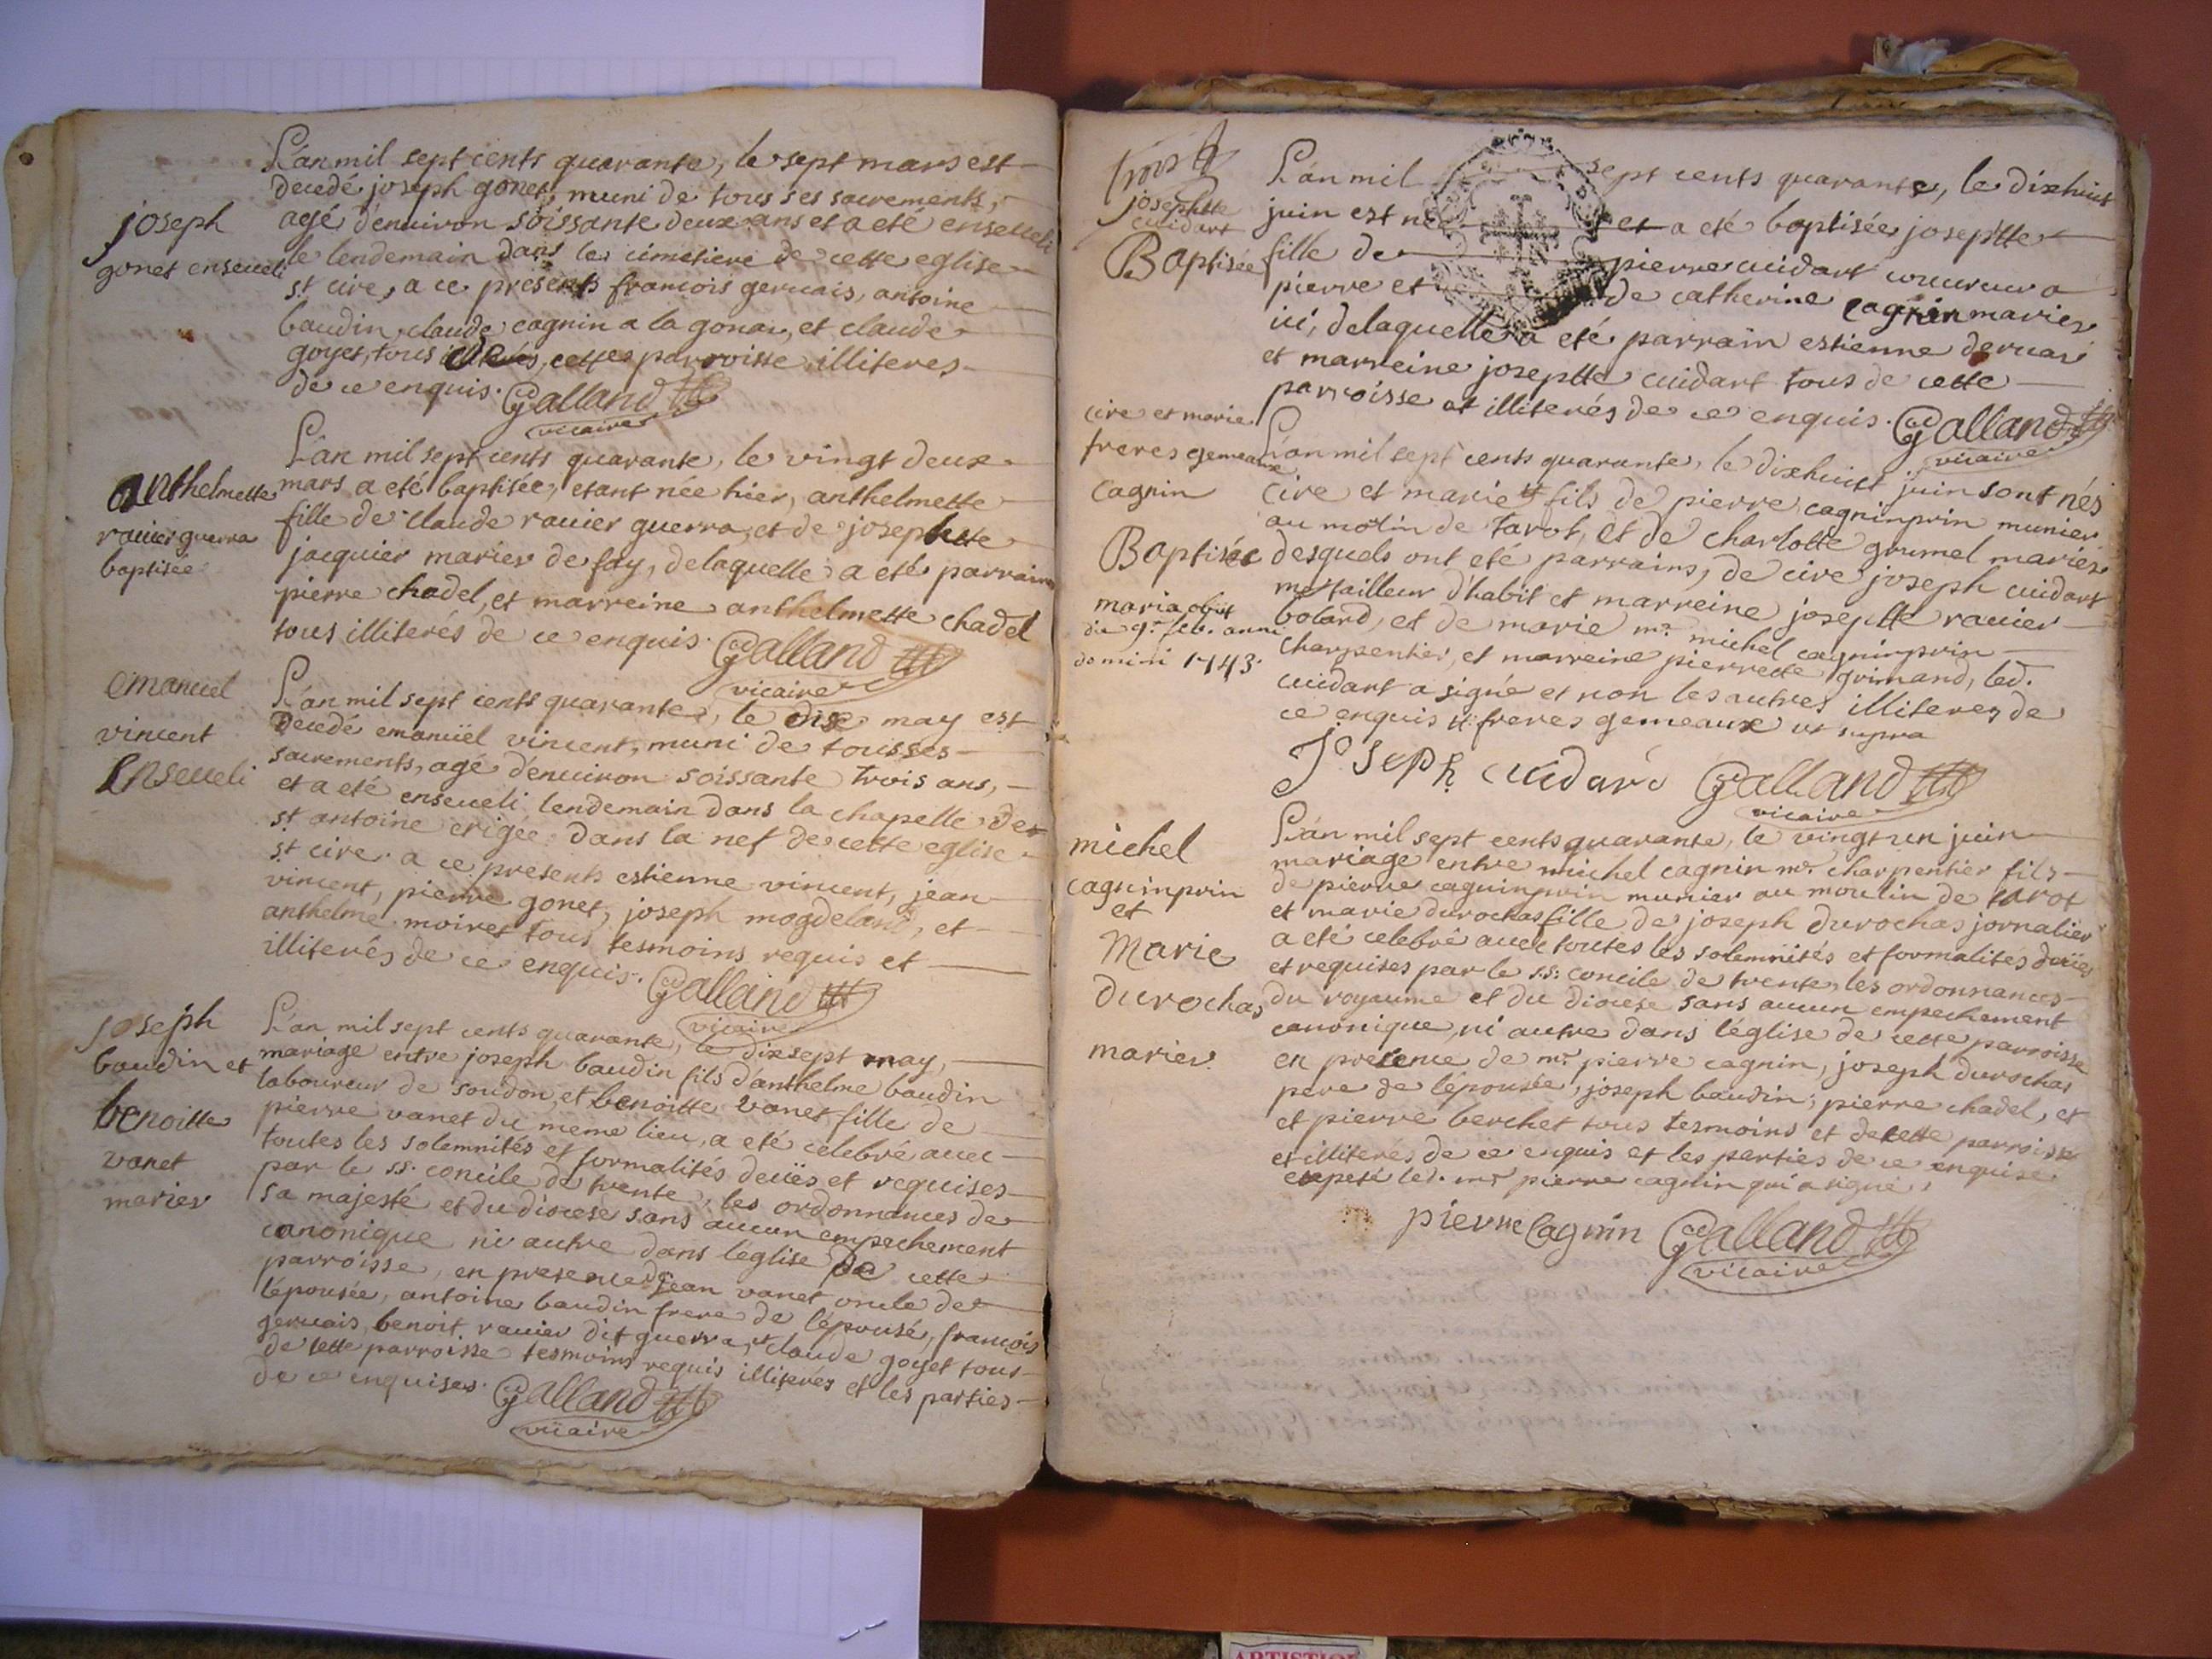 L'an mil sept cents quarante, le sept mars est
decedé joseph gonet, muni de tous ses sacrements,
joseph
agé d'enuiron soissante deux ans et a eté enseueli
gonet enseueli
le lendemain dans le cimetiere de cette eglise
st cire, a ce presents francois geruais, antoine
baudin, claude cagnin a la gonar, et claude
goyet, tous de cette parroisse illiteres
de ce enquis. Galland
vicaire
L'an mil sept cents quarante, le vingt deux
anthelmette
mars a eté baptisée, etant née hier, anthelmette
rauier guerra
fille de claude rauier guerra, et de josephtte
baptisée
jacquier maries de fay, delaquelle a eté parrain
pierre chadel, et marreine anthelmette chadel
tous illiterés de ce enquis. Galland
vicaire
emanuel
L'an mil sept cents quarante, le dix may est
vincent
decedé emanüel vincent, muni de tousses
Enseueli
sacrements, agé d'enuiron soissante trois ans,
et a eté enseueli lendemain dans la chapelle de
st antoine erigée dans la nef de cette eglise
st cire. a ce presents estienne vincent, jean
vincent, pierre gonet, joseph mogdeland, et
anthelme moiret tous tesmoins requis et
illiterés de ce enquis. Galland
vicaire
joseph
L'an mil sept cents quarante, le dixsept may,
baudin et
mariage entre joseph baudin fils d'anthelme baudin
benoitte
laboureur de soudon, et benoitte vanet fille de
vanet
pierre vanet du meme lieu, a eté celebré auec
maries
toutes les solemnités et formalités deües et requises
par le ss. concile de trente, les ordonnances de
sa majesté et du diocese sans aucun empechement
canonique ni autre dans l'église de cette
parroisse, en presence de jean vanet oncle de
l'épousée, antoine baudin frere de l'épousé, francois
geruais, benoit rauier dit guerra, et claude goyet tous
de cette parroisse tesmoins requis illiterés et les parties
de ce enquises. Galland
vicaire
josephtte
cuidart
Baptisée
L'an mil sept cents quarante, le dixhuit
juin est née et a eté baptisée joseptte
fille de pierre cuidart coureur a
pierre et de catherine cagnin maries
ici, delaquelle a eté parrain estienne deruas
et marreine joseptte cuidart tous de cette
parroisse et illiterés de ce enquis. Galland
vicaire
cire et marie
freres gemeaux
cagnin
Baptisés
maria obiit
die 9a feb. anni
domini 1743.
L'an mil sept cents quarante, le dixhuit juin sont nés
cire et marie # fils de pierre cagninprin munier
au molin de tarot, et de charlotte grumel maries
desquels ont eté parrains, de cire joseph cuidart
mr tailleur d'habit et marreine joseptte rauier
bolard, et de marie mr. michel cagninprin
charpentier, et marreine pierrette grimand, led.
cuidart a signé et non les autres illiteres de
ce enquis # freres gemeaux ut supra
Joseph cuidart Galland
vicaire
michel
cagninprin
et
Marie
durochas
maries
L'an mil sept cents quarante, le vingt un juin
mariage entre michel cagnin mr. charpentier fils
de pierre cagninprin munier au moulin de tarot
et marie durochas fille de joseph durochas jornalier
a eté celebré auec toutes les solemnités et formalités deües
et requises par le s.s. concile de trente, les ordonnances
du royaume et du diocese sans aucun empechement
canonique, ni autre dans l'église de cette parroisse
en presence de mr. pierre cagnin, joseph durochas
pere de l'épousée, joseph baudin, pierre chadel, et
et pierre berchet tous tesmoins et de cette parroisse
et illiterés de ce enquis et les parties de ce enquise
excepté led. mr pierre cagnin qui a signé,
pierre Cagnin Galland
vicaire